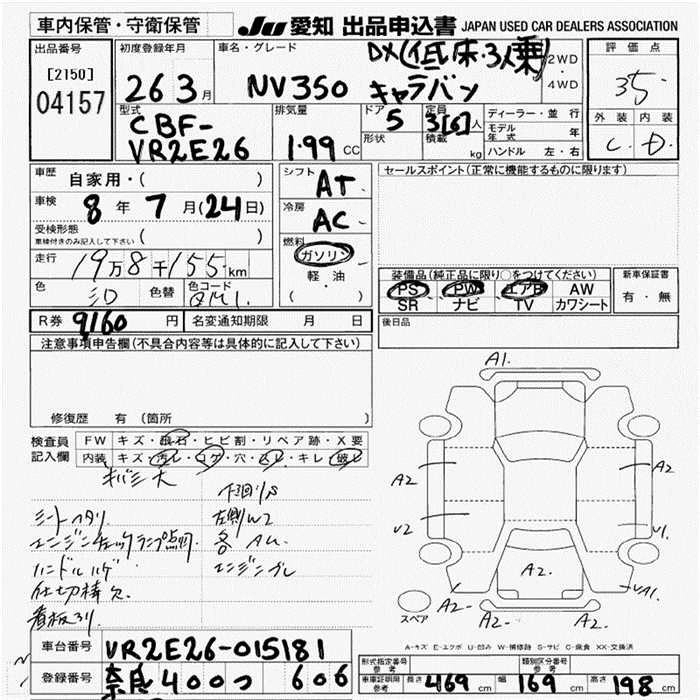 車内保管・守衛保管
JU 愛知 出品申込書 JAPAN USED CAR DEALERS ASSOCIATION
出品番号
[2150]
04157
初度登録年月
26 3月
車名・グレード
DX(低床・3人乗)
NV350 キャラバン
2WD
・
4WD
評価点
3.5
外装 内装
C D
型式
CBF-
VR2E26
排気量
1.99 CC
ドア
5
形状
定員
3[6]人
積載
kg
ディーラー・並行
モデル年式 年
ハンドル 左・右
車歴
自家用・( )
車検
8年 7月(24日)
受検形態
車検付きのみ記入して下さい ( )
走行
19万8千155km
色
色替
色コード
QM1
シフト
AT
冷房
AC
燃料
ガソリン
軽・油
( ・ )
セールスポイント(正常に機能するものに限ります)
装備品(純正品に限り○をつけてください)
PS PW エアB AW
SR ナビ TV カワシート
新車保証書
有・無
R券 9160 円
名変通知期限 月 日
後日品
注意事項申告欄(不具合内容等は具体的に記入して下さい)
修復歴 有 (箇所
検査員
記入欄
FW キズ・飛石・ヒビ割・リペア跡・X要
内装 キズ・汚レ・コゲ・穴・スレ・キレ・破レ
下回りS
シートヘタリ
左側W2
エンジンチェックランプ点灯
各AU
ハンドルハゲ
仕切棒欠
看板入り
A1.
A2
A2
V2
V1.
A2.
A2-
A2-
A2-
スペア
A-キズ E-エクボ U-凹み W-補修跡 S-サビ C-腐食 XX-交換済
車台番号
VR2E26-015181
登録番号
奈良 400つ 606
形式指定番号
参考
類別区分番号
参考
車庫証明用
参考
長さ 469 cm 幅 169 cm 高さ 198 cm